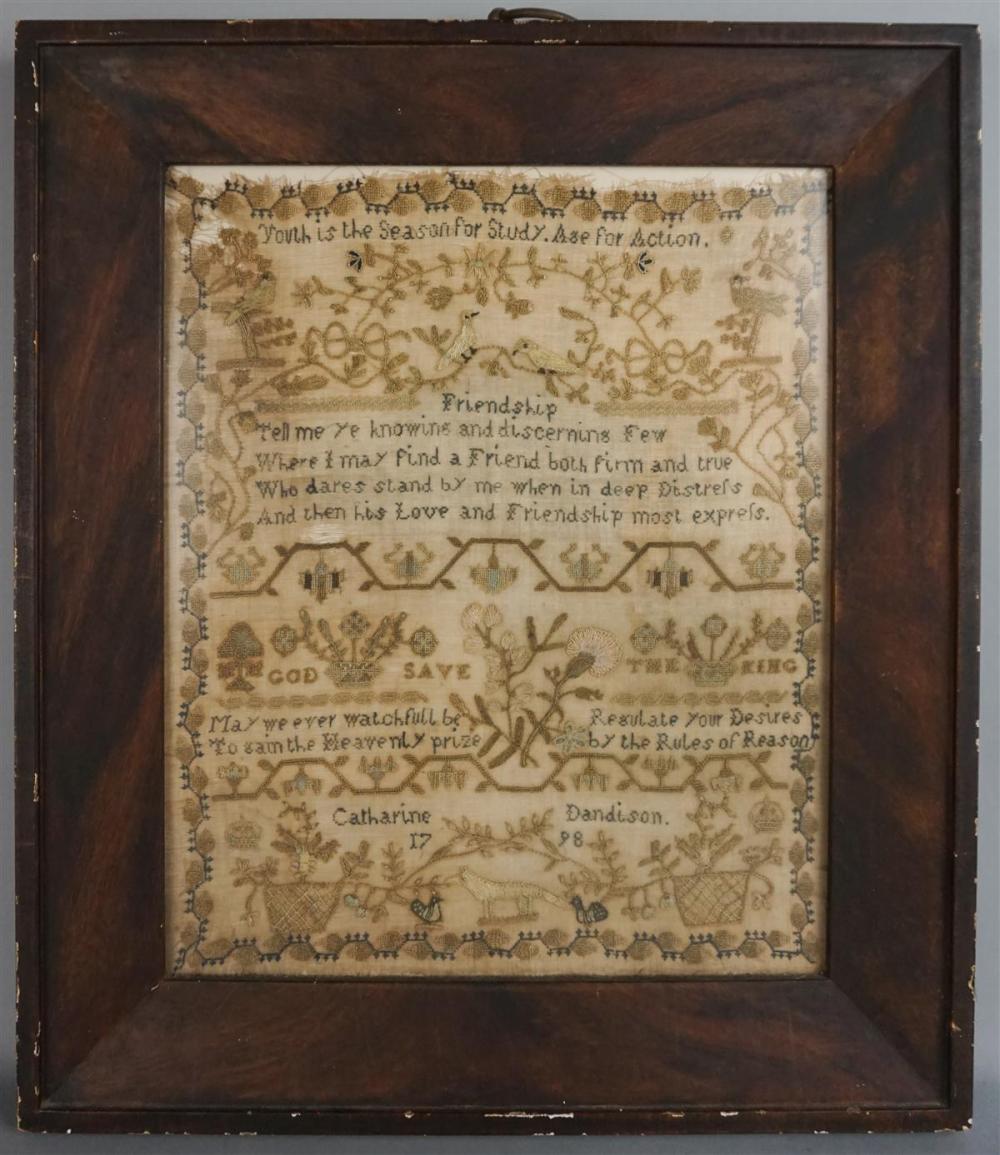 Youth is the Season for Study. Age for Action.
Friendship
Tell me ye knowing and discerning Few
Where I may find a Friend both firm and true
Who dares stand by me when in deep Distreſs
And then his Love and Friendship most expreſs.
GOD SAVE THE KING
May we ever watchfull be
To gain the Heavenly prize
Regulate your Desires
by the Rules of Reason
Catharine Dandison.
17 98